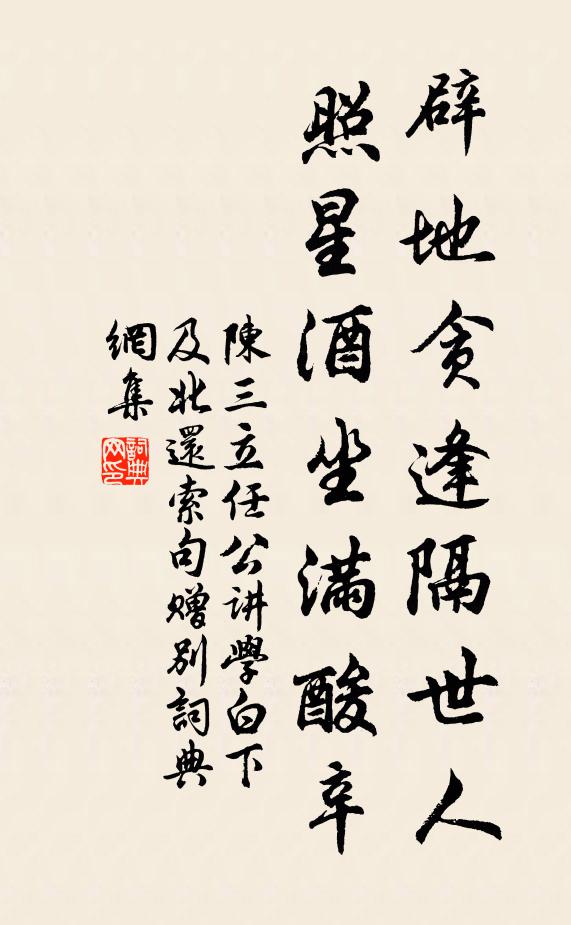 辟地貪逢隔世人
照星酒坐滿酸辛
陳三立任公講學白下
及北還索句贈別詞典
網集
詞典網印